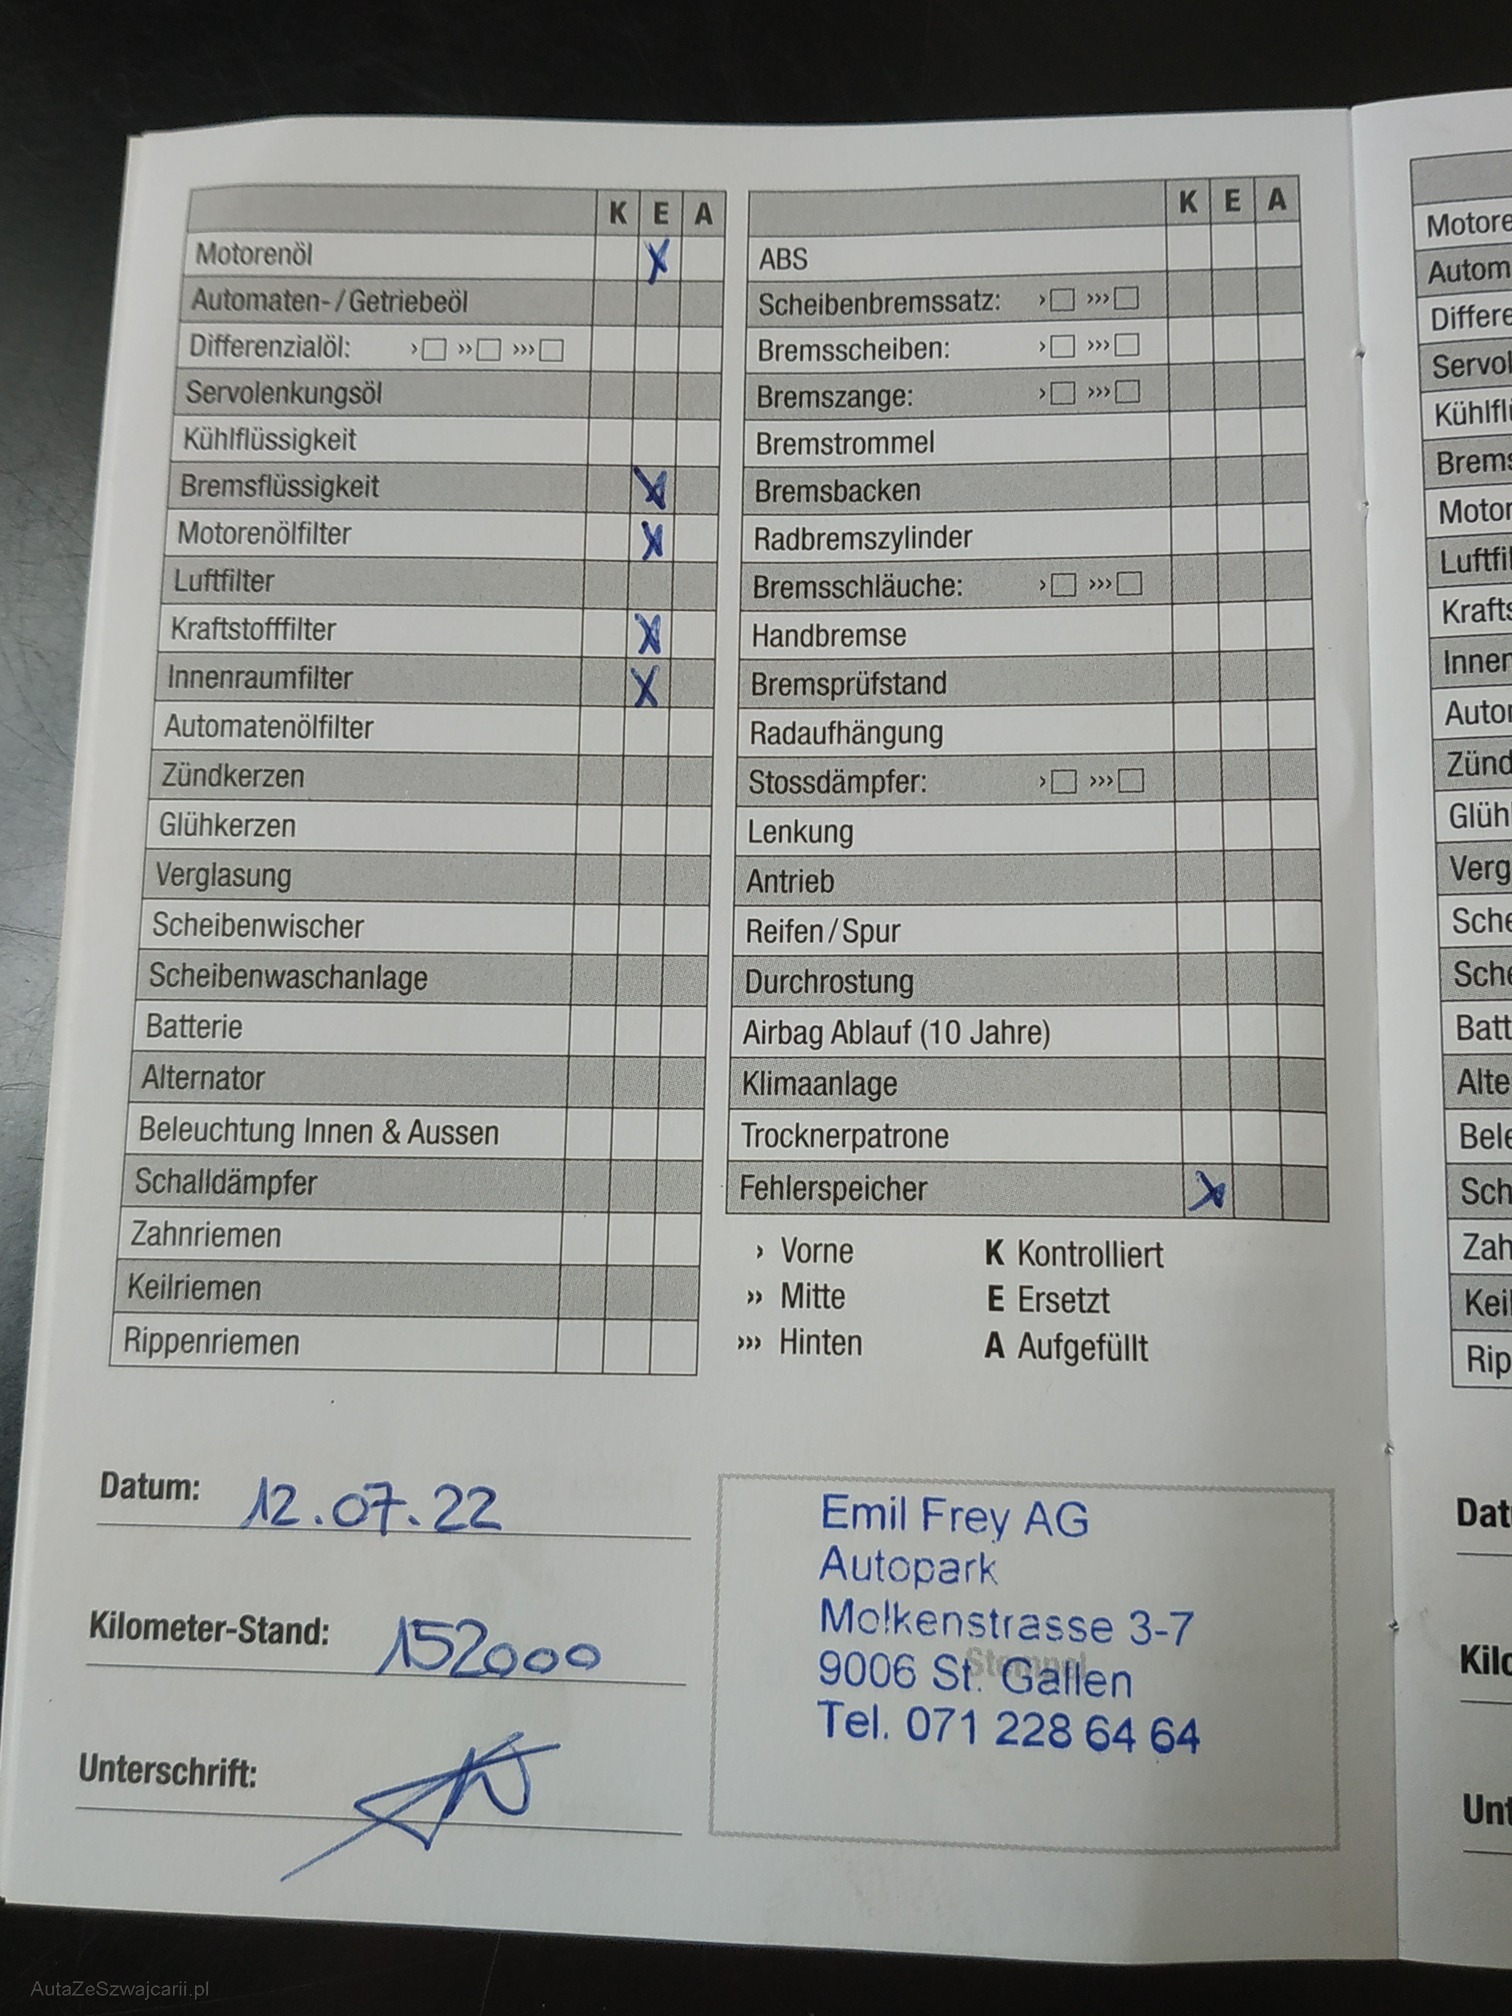 K E A
Motorenöl X
Automaten- / Getriebeöl
Differenzialöl: › ›› ›››
Servolenkungsöl
Kühlflüssigkeit
Bremsflüssigkeit X
Motorenölfilter X
Luftfilter
Kraftstofffilter X
Innenraumfilter X
Automatenölfilter
Zündkerzen
Glühkerzen
Verglasung
Scheibenwischer
Scheibenwaschanlage
Batterie
Alternator
Beleuchtung Innen & Aussen
Schalldämpfer
Zahnriemen
Keilriemen
Rippenriemen
K E A
ABS
Scheibenbremssatz: › ›››
Bremsscheiben: › ›››
Bremszange: › ›››
Bremstrommel
Bremsbacken
Radbremszylinder
Bremsschläuche: › ›››
Handbremse
Bremsprüfstand
Radaufhängung
Stossdämpfer: › ›››
Lenkung
Antrieb
Reifen / Spur
Durchrostung
Airbag Ablauf (10 Jahre)
Klimaanlage
Trocknerpatrone
Fehlerspeicher X
› Vorne K Kontrolliert
›› Mitte E Ersetzt
››› Hinten A Aufgefüllt
Datum: 12.07.22
Kilometer-Stand: 152000
Unterschrift:
Emil Frey AG
Autopark
Molkenstrasse 3-7
Stempel
9006 St. Gallen
Tel. 071 228 64 64
Motore
Autom
Differe
Servol
Kühlfl
Brems
Motor
Luftfil
Krafts
Innen
Autor
Zünd
Glühl
Verg
Sche
Sche
Batt
Alte
Bele
Sch
Zah
Keil
Rip
Dat
Kilo
Unt
AutaZeSzwajcarii.pl